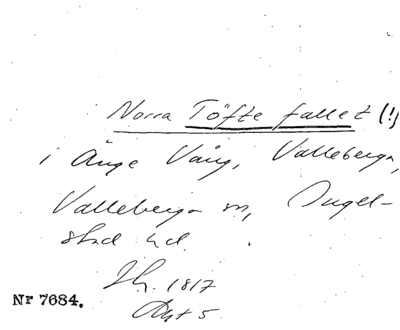 Norra Töfte fallet (!)
i Änge Vång, Valleberga,
Valleberga sn, Ingel-
stad hd.
Sk. 1817
Akt 5
Nr 7684.